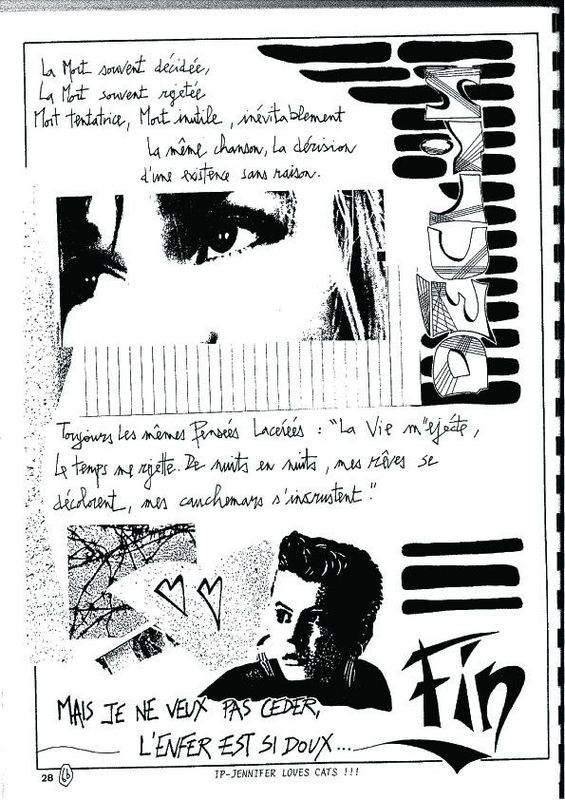 La Mort souvent décidée,
La Mort souvent rejetée
Mort tentatrice, Mort inutile, inévitablement
La même chanson, La dérision
d'une existence sans raison.
Toujours Les mêmes Pensées Lacérées : "La Vie m"ejecte,
Le temps me rejette. De nuits en nuits, mes rêves se
décolorent, mes cauchemars s'incrustent."
MAIS JE NE VEUX PAS CEDER,
L'ENFER EST SI DOUX...
Fin
28
IP-JENNIFER LOVES CATS !!!